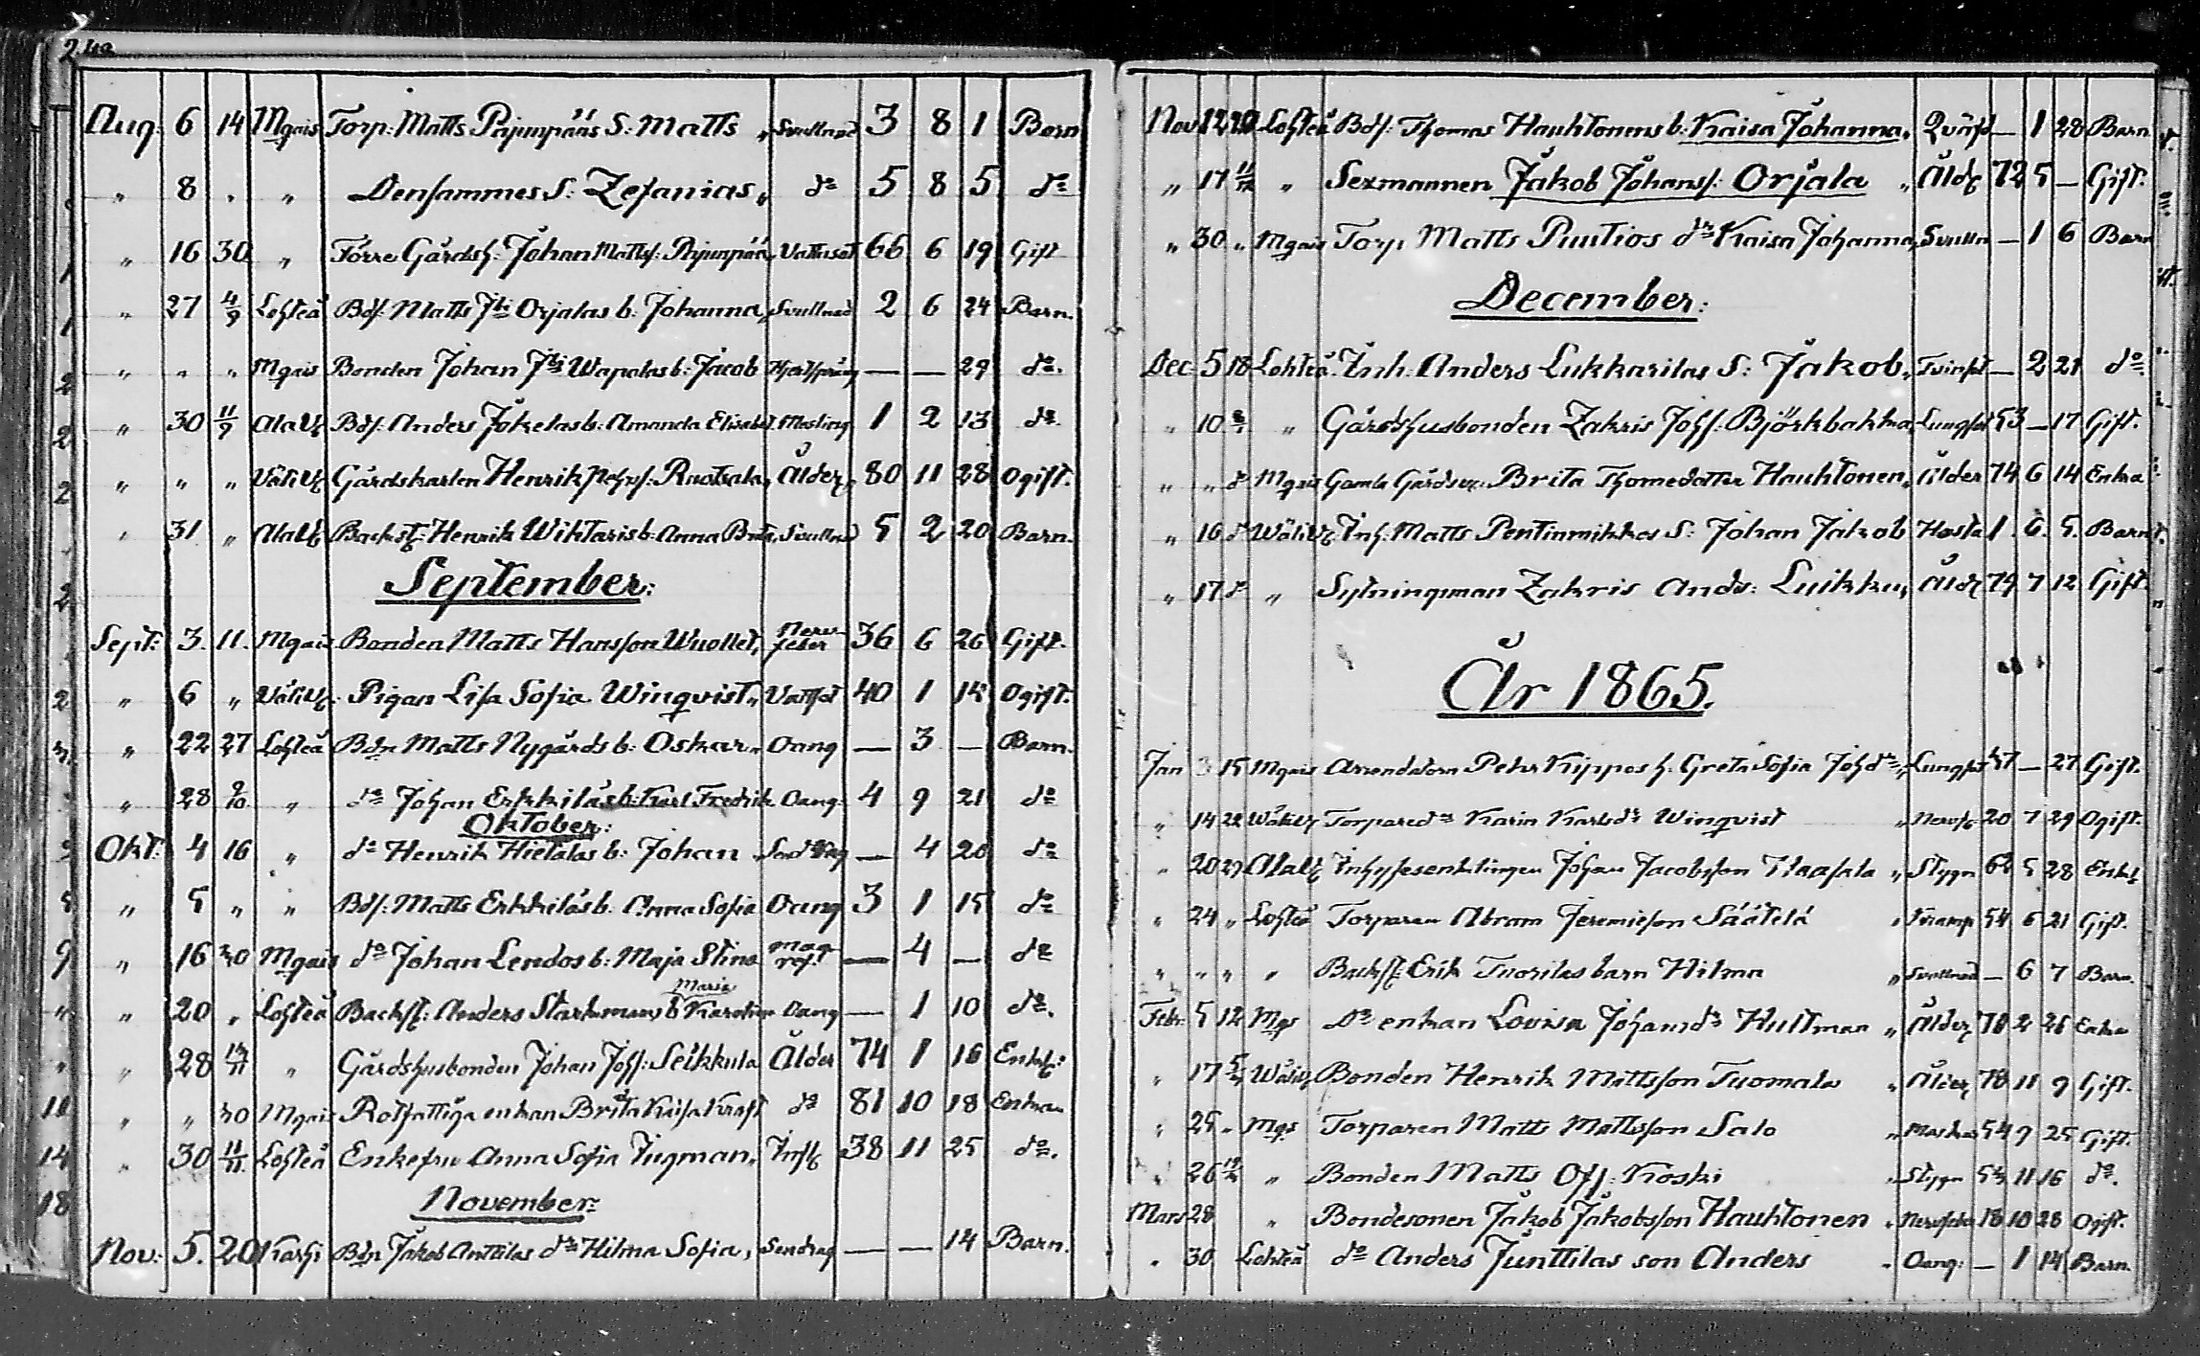 Aug: 6 14 Mgais Torp: Matts Pajunpääs S: Matts „ Svullnad 3 8 1 Barn
„ 8 „ „ Densammes S: Zefanias „ do 5 8 5 do
„ 16 30 „ Förre Gårdsh: Johan Matts: Pajunpää „ Vattusot 66 6 19 Gift
„ 27 4/9 Lohteå Bds: Matts Orjalas b: Johanna „ Svullnad 2 6 24 Barn.
„ „ „ Mgais Bonden Johan Wapalas b: Jacob — — 29 do.
„ 30 11/9 Bds: Anders Jokelas b: Amanda Elisabet Masling 1 2 13 do.
„ „ „ Gårdskarlen Henrik Ruotsala „ Ålder 80 11 28 Ogift.
„ 31 „ Backst: Henrik Wiktaris b: Anna Brita Svullnad 5 2 20 Barn.
September:
Sept: 3. 11. Mgais Bonden Matts Hansson Wuollet, Nerv-feber 36 6 26 Gift.
„ 6 „ Pigan Lisa Sofia Winqvist „ Vattsot 40 1 15 Ogift.
„ 22 27 Lohteå Bdn Matts Nygårds b: Oskar „ Oang — 3 — Barn.
„ 28 9/10 „ do Johan Erkkiläs b: Karl Fredrik Oang: 4 9 21 do
Oktober:
Okt: 4 16 „ do Henrik Hietalas b: Johan — 4 20 do
„ 5 „ „ Bds: Matts Erkkiläs b: Anna Sofia Oang 3 1 15 do
„ 16 30 Mgais do Johan Lendos b: Maja Stina — 4 — do
„ 20 „ Lohteå Backst: Anders Starkmans b Maria Karolina Oang — 1 10 do.
„ 28 „ Gårdshusbonden Johan Johs: Seikkula Ålder 74 1 16
„ „ 30 Mgais Rotfattiga enkan Brita Kaisa Kraft do 81 10 18 Enka
„ 30 11/11 Lohteå Enkefru Anna Sofia 38 11 25 do.
November:
Nov: 5. 20 Karhi Bdn Jakob Anttilas dr Hilma Sofia, Sendrag — — 14 Barn.
Nov 12 20 Lohteå Bds: Thomas Hauhtonens b: Kaisa Johanna „ — 1 28 Barn
„ 17 11/12 „ Sexmannen Jakob Johans: Orjala „ 72 5 — Gift.
„ 30 „ Mgais Torp Matts Puutios dr Kaisa Johanna, — 1 6 Barn
December:
Dec 5 18 Lohteå Inh: Anders Lukkarilas S: Jakob „ — 2 21 do
„ 10 „ Gårdshusbonden Zakris Johs: Björkbakka, Lungsot 53 — 17 Gift.
„ „ Mgais Gamla Gårdsv: Brita Thomedotter Hauhtonen „ Ålder 74 6 14 Enka
„ 16 Inh: Matts Pentinmikkos S: Johan Jakob Hosta 1 6 5 Barn
„ 17 „ Sytningman Zakris Ands: Luikku, 79 7 12 Gift.
År 1865.
Jan 3 15 Mgais Arrendatorn Petr Kippos h. Greta Sofia Lungsot 47 — 27 Gift.
„ 14 22 Torparedr Karin Karlsdr Winqvist „ 20 7 29 Ogift.
„ 20 29 Inhysesenklingen Johan Jacobsson Haasala „ Stygn 62 5 28 Enkl
„ 24 „ Lohteå Torparen Abram Jeremiesson Säätelä „ 54 6 21 Gift.
„ „ „ „ Backst: Erik Tuorilas barn Hilma „ Svullnad — 6 7 Barn.
Febr: 5 12 Mgs Do enkan Lovisa Johansdr Hultman „ Ålder 78 2 26 Enka
„ 17 Bonden Henrik Mattsson Tuomala „ Ålder 78 11 9 Gift.
„ 25 „ Mgs Torparen Matts Mattsson Salo „ 54 9 25 Gift.
„ 26 „ Bonden Matts Koski „ Stygn 54 11 16 do.
Mars 28 „ Bondesonen Jakob Jakobsson Hauhtonen „ Nervfeber 18 10 28 Ogift.
„ 30 Lohteå do Anders Junttilas son Anders „ Oang: — 1 14 Barn.